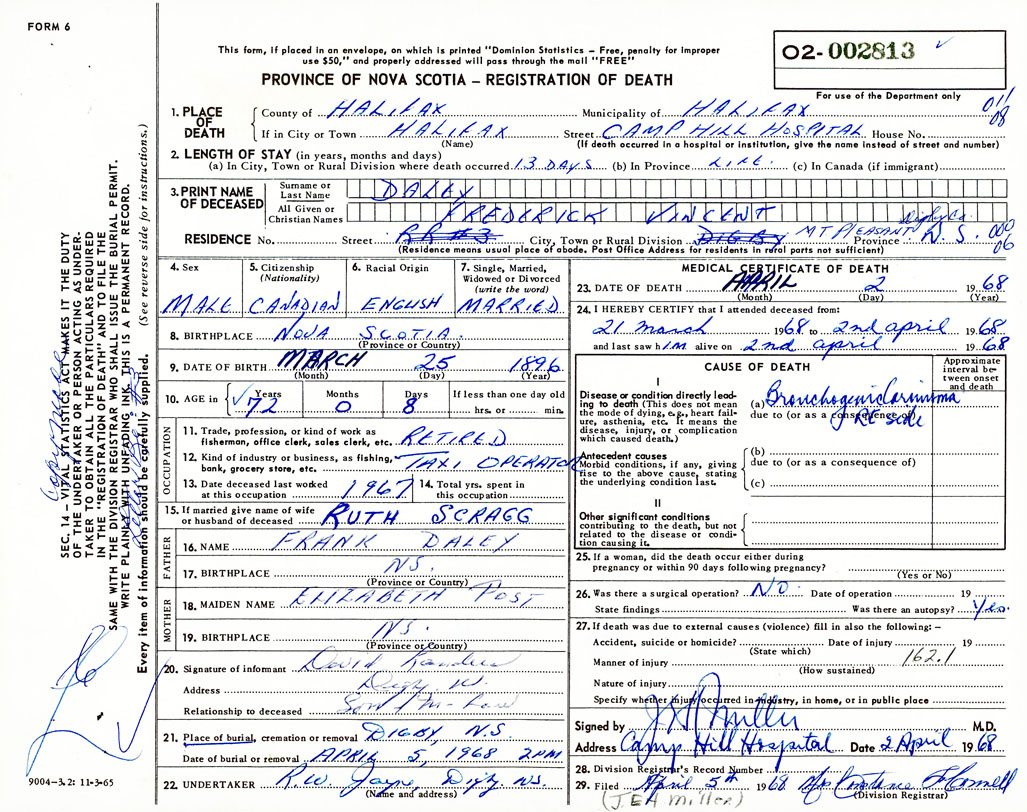 FORM 6
This form, if placed in an envelope, on which is printed "Dominion Statistics – Free, penalty for improper
use $50," and properly addressed will pass through the mail "FREE"
PROVINCE OF NOVA SCOTIA – REGISTRATION OF DEATH
02-002813
For use of the Department only
011
08
1. PLACE OF DEATH
County of HALIFAX Municipality of HALIFAX
If in City or Town HALIFAX Street CAMP HILL HOSPITAL House No.
(Name) (If death occurred in a hospital or institution, give the name instead of street and number)
2. LENGTH OF STAY (in years, months and days)
(a) In City, Town or Rural Division where death occurred 13 DAYS (b) In Province LIFE. (c) In Canada (if immigrant)
3. PRINT NAME OF DECEASED
Surname or Last Name DALEY
All Given or Christian Names FREDERICK VINCENT
Digby Co.
RESIDENCE No. Street RR#3 City, Town or Rural Division DIGBY MT PLEASANT Province N.S. 000
06
(Residence means usual place of abode. Post Office Address for residents in rural parts not sufficient)
4. Sex
MALE
5. Citizenship (Nationality)
CANADIAN
6. Racial Origin
ENGLISH
7. Single, Married, Widowed or Divorced (write the word)
MARRIED
8. BIRTHPLACE NOVA SCOTIA
(Province or Country)
9. DATE OF BIRTH MARCH 25 1896
(Month) (Day) (Year)
10. AGE in Years 72 Months 0 Days 8 If less than one day old hrs. or min.
OCCUPATION
11. Trade, profession, or kind of work as
fisherman, office clerk, sales clerk, etc. RETIRED
12. Kind of industry or business, as fishing,
bank, grocery store, etc. TAXI OPERATOR
13. Date deceased last worked at this occupation 1967
14. Total yrs. spent in this occupation
15. If married give name of wife or husband of deceased RUTH SCRAGG
FATHER
16. NAME FRANK DALEY
17. BIRTHPLACE N.S.
(Province or Country)
MOTHER
18. MAIDEN NAME ELIZABETH POST
19. BIRTHPLACE N.S.
(Province or Country)
20. Signature of informant David
Address
Relationship to deceased Son in-Law
21. Place of burial, cremation or removal DIGBY, N.S.
Date of burial or removal APRIL 5, 1968 2PM
22. UNDERTAKER R.W. Jayne, Digby NS.
(Name and address)
MEDICAL CERTIFICATE OF DEATH
23. DATE OF DEATH APRIL 2 1968
(Month) (Day) (Year)
24. I HEREBY CERTIFY that I attended deceased from:
21 march 1968 to 2nd april 1968
and last saw him alive on 2nd april 1968
CAUSE OF DEATH
Approximate interval between onset and death
I
Disease or condition directly leading to death (This does not mean the mode of dying, e.g., heart failure, asthenia, etc. It means the disease, injury, or complication which caused death.)
(a) Bronchogenic Carcinoma
due to (or as a consequence of)
Rt side
Antecedent causes
Morbid conditions, if any, giving rise to the above cause, stating the underlying condition last.
(b)
due to (or as a consequence of)
(c)
II
Other significant conditions
contributing to the death, but not related to the disease or condition causing it.
25. If a woman, did the death occur either during
pregnancy or within 90 days following pregnancy?
(Yes or No)
26. Was there a surgical operation? NO Date of operation 19
State findings Was there an autopsy? Yes.
27. If death was due to external causes (violence) fill in also the following: –
Accident, suicide or homicide? Date of injury 19
(State which)
162.1
Manner of injury
(How sustained)
Nature of injury
Specify whether injury occurred in industry, in home, or in public place
Signed by J H Miller M.D.
Address Camp Hill Hospital Date 2 April 1968
28. Division Registrar's Record Number
29. Filed April 5th 1968
(Division Registrar)
(J E H Miller)
SEC. 14 – VITAL STATISTICS ACT MAKES IT THE DUTY
OF THE UNDERTAKER OR PERSON ACTING AS UNDERTAKER
TO OBTAIN ALL THE PARTICULARS REQUIRED
IN THE "REGISTRATION OF DEATH" AND TO FILE THE
SAME WITH THE DIVISION REGISTRAR WHO SHALL ISSUE THE BURIAL PERMIT.
WRITE PLAINLY WITH UNFADING INK. THIS IS A PERMANENT RECORD.
Every item of information should be carefully supplied. (See reverse side for instructions.)
9004–3.2: 11-3-65